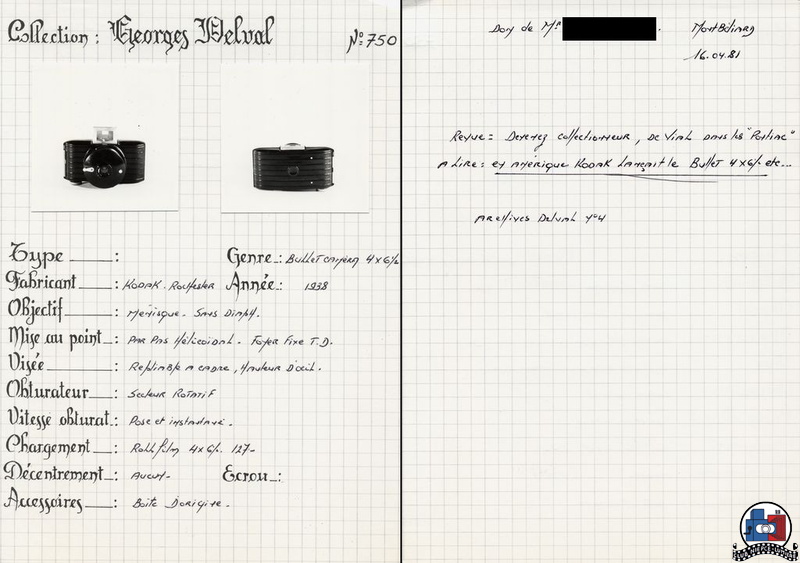 Collection : Georges Delval
N° 750
Type :
Genre : Bullet caméra 4x6½
Fabricant : KODAK. Rochester Année : 1938
Objectif : Ménisque. Sans Diaph.
Mise au point : Par Pas Hélicoidal. Foyer Fixe T.D.
Visée : Repliable A cadre, Hauteur D'oeil.
Obturateur : Secteur Rotatif
Vitesse obturat. : Pose et instantané.
Chargement : Roll film 4x6½. 127-
Décentrement : Aucun-
Ecrou :
Accessoires : Boite D'origine.
Don de Mr . Montbéliard
16.04.81
Revue = Devenez collectionneur, De Vial dans les "Pontiac"
A Lire : en Amérique Kodak Lançait le Bullet 4x6½ etc...
Archives Delval N°4